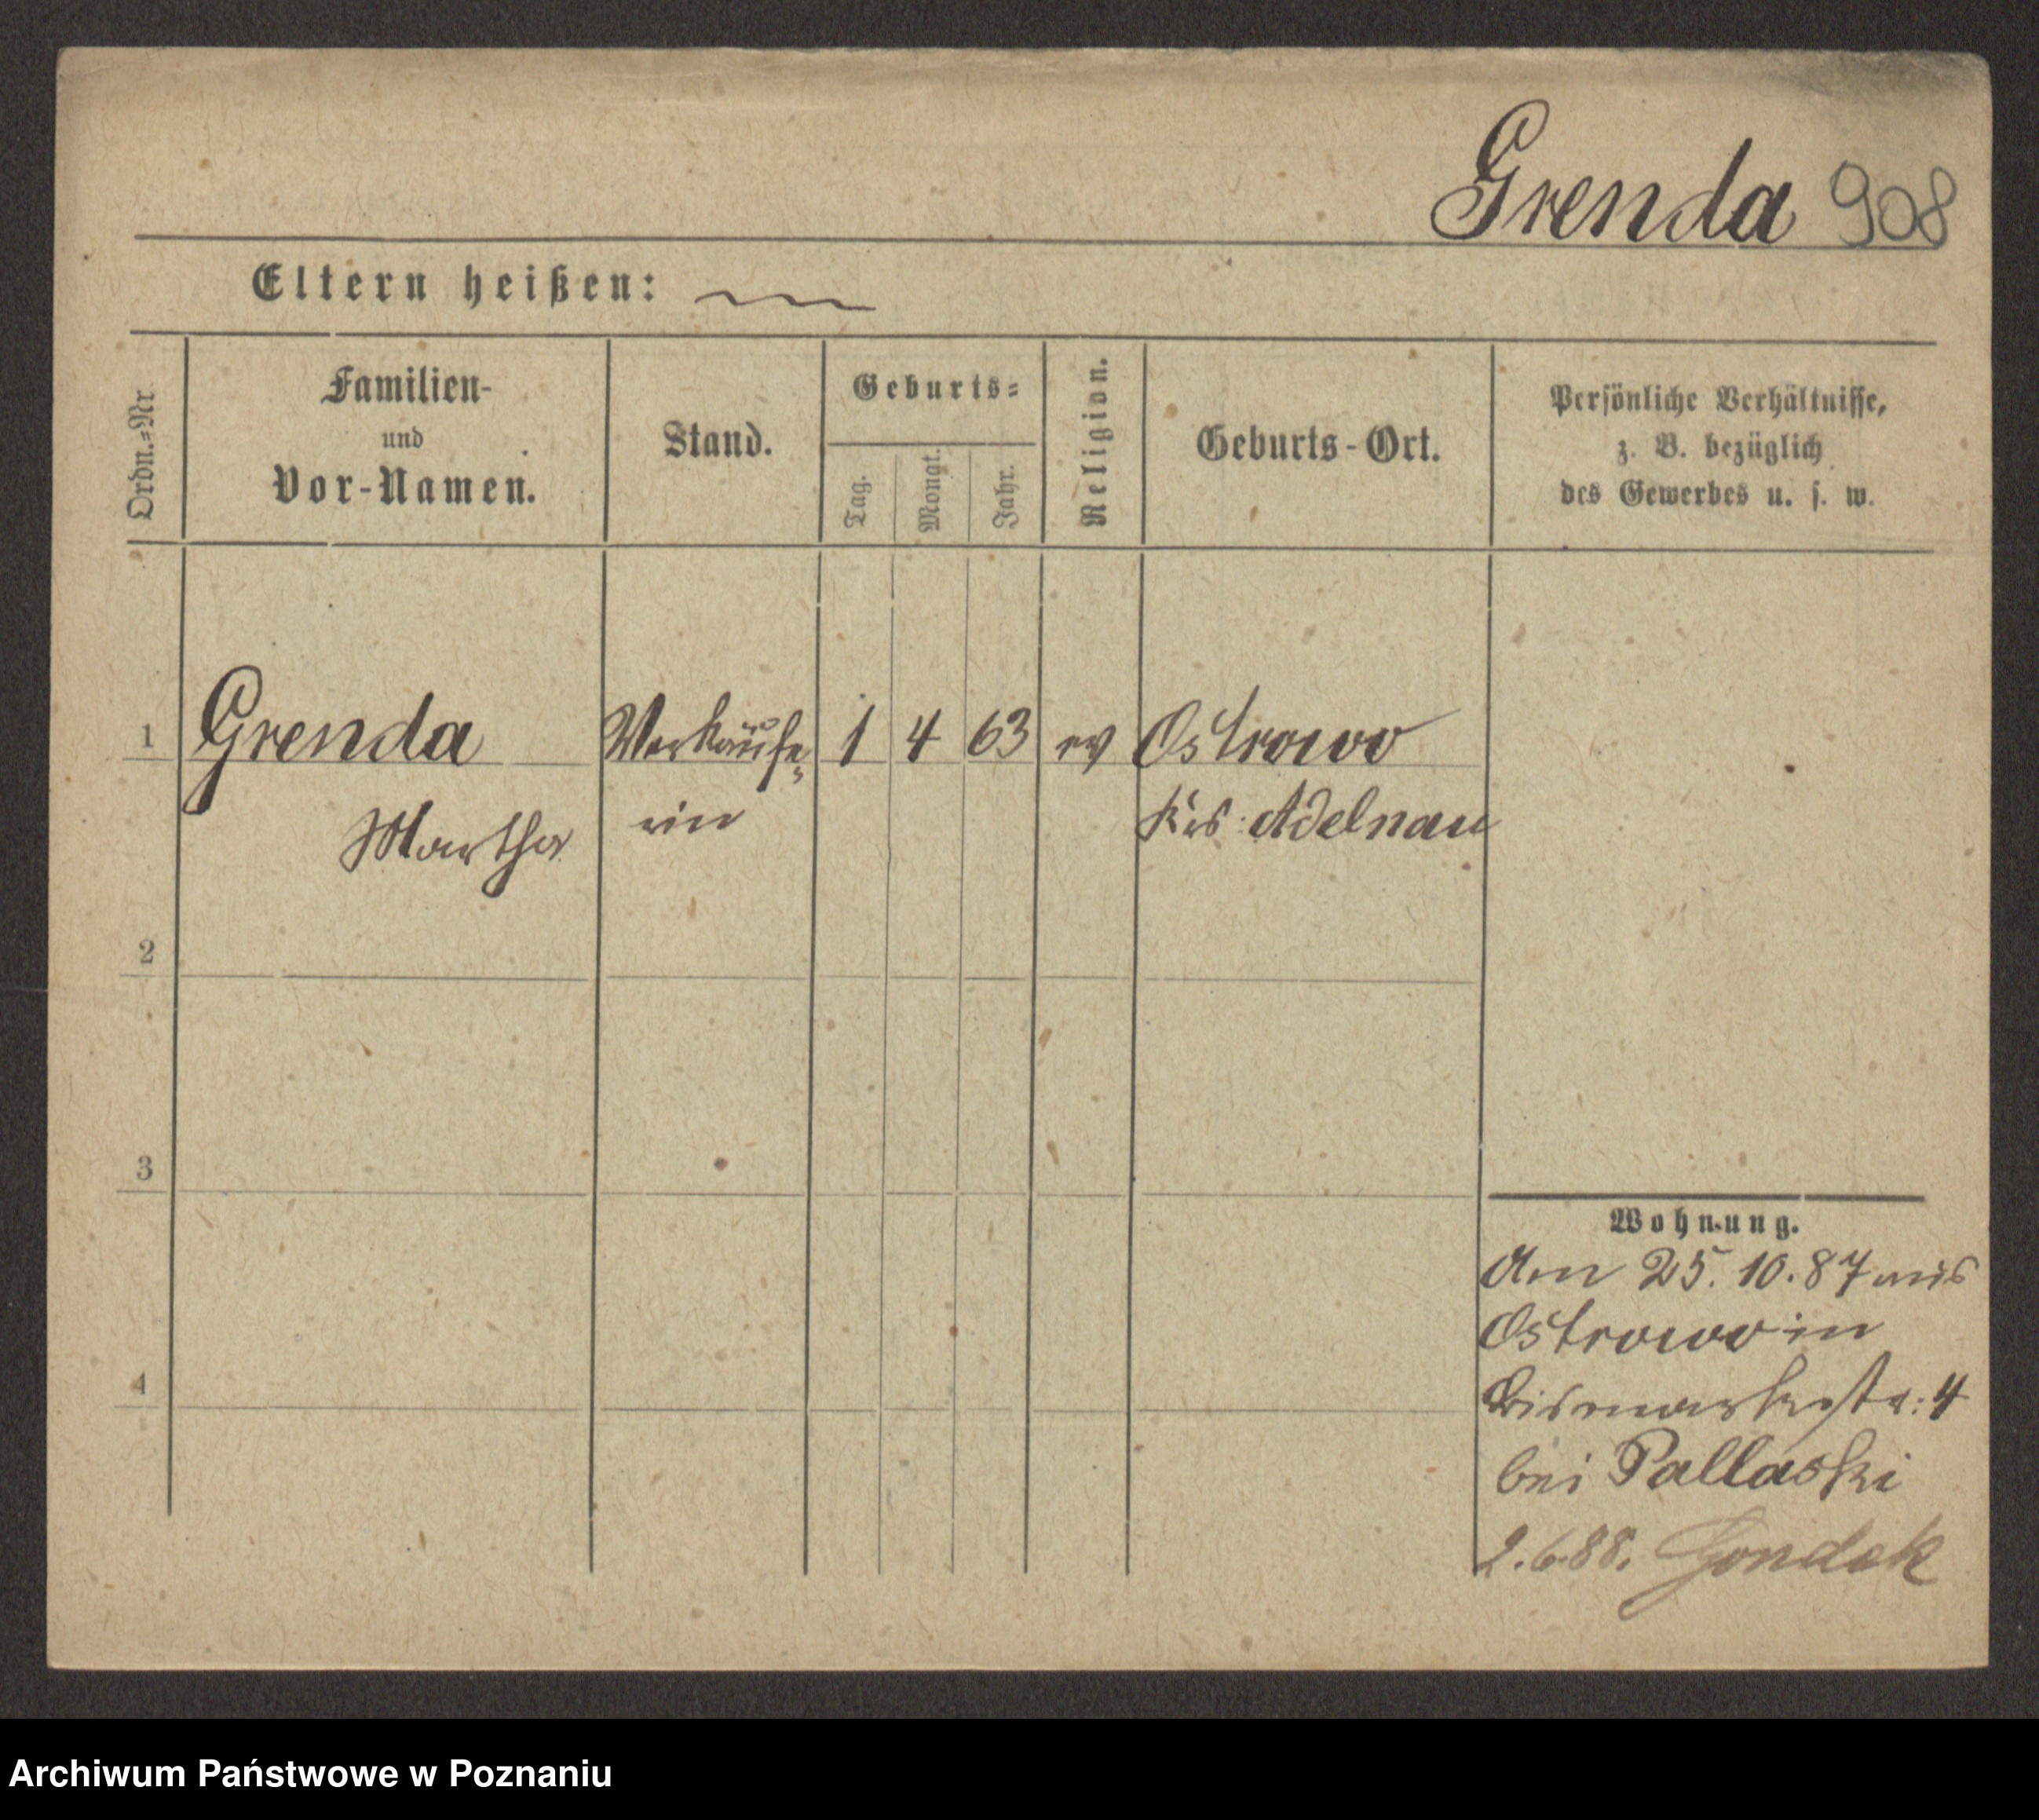 Grenda 908
Eltern heißen:
Ordn.=Nr
Familien-
und
Vor-Namen.
Stand.
Geburts=
Tag.
Monat.
Jahr.
Religion.
Geburts-Ort.
Persönliche Verhältnisse,
z. B. bezüglich
des Gewerbes u. s. w.
1 Grenda Verkäufe= 1 4 63 ev Ostrowo
Martha rin Krs: Adelnau
2
3
4
Wohnung.
Am 25. 10. 87 aus
Ostrowo in
Bismarkstr: 4
bei Pallaski
2.6.88. Gondek
Archiwum Państwowe w Poznaniu